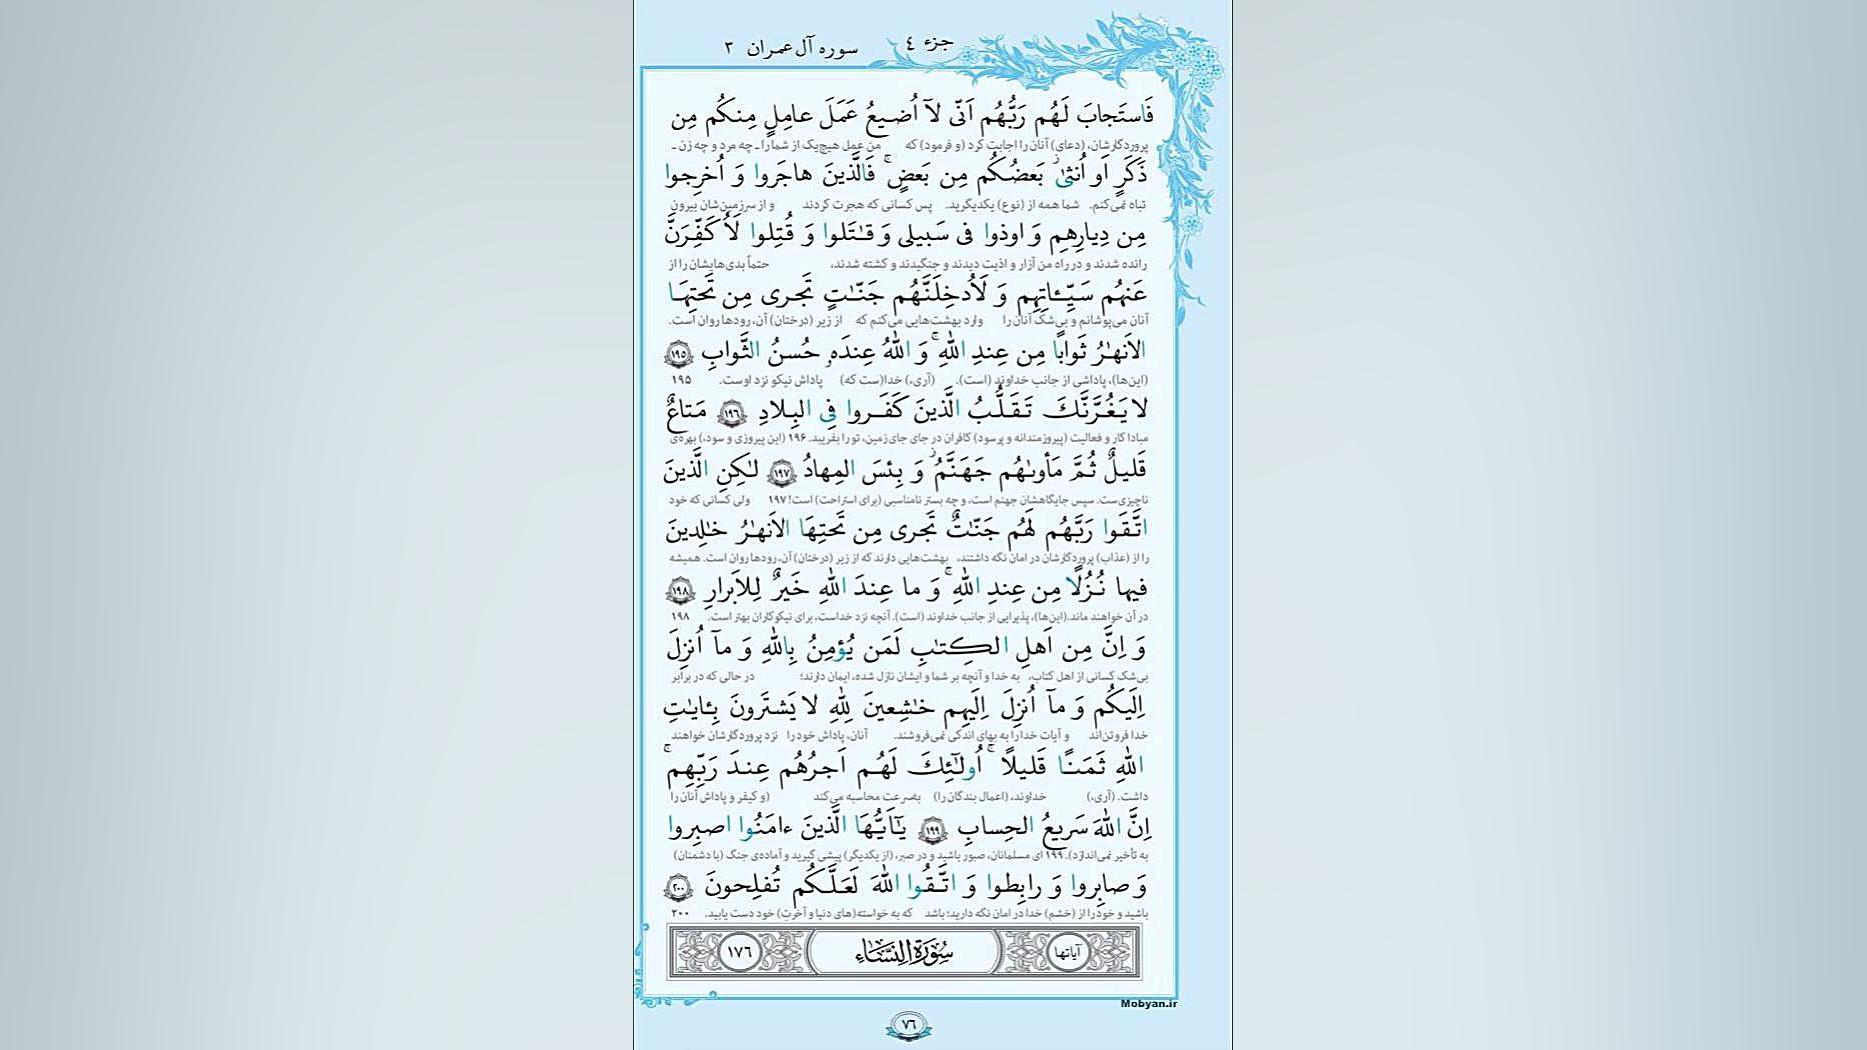 جزء ٤
سوره آل عمران ٣
فَاستَجابَ لَهُم رَبُّهُم اَنّی لاۤ اُضیعُ عَمَلَ عامِلٍ مِنکُم مِن
پروردگارشان، (دعای) آنان را اجابت کرد (و فرمود) که من عمل هیچ‌یک از شما را ـ چه مرد و چه زن ـ
ذَکَرٍ اَو اُنثیٰ ۖ بَعضُکُم مِن بَعضٍ ۚ فَالَّذینَ هاجَروا وَ اُخرِجوا
تباه نمی‌کنم. شما همه از (نوع) یکدیگرید. پس کسانی که هجرت کردند و از سرزمین‌شان بیرون
مِن دِیارِهِم وَ اوذوا فی سَبیلی وَ قٰتَلوا وَ قُتِلوا لَاُکَفِّرَنَّ
رانده شدند و در راه من آزار و اذیت دیدند و جنگیدند و کشته شدند، حتماً بدی‌هایشان را از
عَنهُم سَیِّـٔاتِهِم وَ لَاُدخِلَنَّهُم جَنّٰتٍ تَجری مِن تَحتِهَا
آنان می‌پوشانم و بی‌شک آنان را وارد بهشت‌هایی می‌کنم که از زیر (درختان) آن، رودها روان است.
الاَنهٰرُ ثَوابًا مِن عِندِ اللهِ ۚ وَ اللهُ عِندَهٗ حُسنُ الثَّوابِ ١٩٥
(این‌ها)، پاداشی از جانب خداوند (است). (آری،) خدا(ست که) پاداش نیکو نزد اوست. ١٩٥
لا یَغُرَّنَّکَ تَقَلُّبُ الَّذینَ کَفَروا فِی البِلادِ ١٩٦ مَتاعٌ
مبادا کار و فعالیت (پیروزمندانه و پرسود) کافران در جای جای زمین، تو را بفریبد. ١٩۶ (این پیروزی و سود،) بهره‌ی
قَلیلٌ ثُمَّ مَأوىٰهُم جَهَنَّمُ ۖ وَ بِئسَ المِهادُ ١٩٧ لٰکِنِ الَّذینَ
ناچیزی‌ست. سپس جایگاهشان جهنم است، و چه بستر نامناسبی (برای استراحت) است! ١٩٧ ولی کسانی که خود
اتَّقَوا رَبَّهُم لَهُم جَنّٰتٌ تَجری مِن تَحتِهَا الاَنهٰرُ خٰلِدینَ
را از (عذاب) پروردگارشان در امان نگه داشتند، بهشت‌هایی دارند که از زیر (درختان) آن، رودها روان است. همیشه
فیها نُزُلًا مِن عِندِ اللهِ ۚ وَ ما عِندَ اللهِ خَیرٌ لِلاَبرارِ ١٩٨
در آن خواهند ماند. (این‌ها)، پذیرایی از جانب خداوند (است). آنچه نزد خداست، برای نیکوکاران بهتر است. ١٩٨
وَ اِنَّ مِن اَهلِ الکِتٰبِ لَمَن یُؤمِنُ بِاللهِ وَ ماۤ اُنزِلَ
بی‌شک کسانی از اهل کتاب، به خدا و آنچه بر شما و ایشان نازل شده، ایمان دارند؛ در حالی که در برابر
اِلَیکُم وَ ماۤ اُنزِلَ اِلَیهِم خٰشِعینَ لِلّٰهِ لا یَشتَرونَ بِـٔایٰتِ
خدا فروتن‌اند و آیات خدا را به بهای اندکی نمی‌فروشند. آنان، پاداش خود را نزد پروردگارشان خواهند
اللهِ ثَمَنًا قَلیلًا ۚ اُولٰۤئِکَ لَهُم اَجرُهُم عِندَ رَبِّهِم ۚ
داشت. (آری،) خداوند، (اعمال بندگان را) به‌سرعت محاسبه می‌کند (و کیفر و پاداش آنان را
اِنَّ اللهَ سَریعُ الحِسابِ ١٩٩ یٰۤاَیُّهَا الَّذینَ ءامَنُوا اصبِروا
به تأخیر نمی‌اندازد). ١٩٩ ای مسلمانان، صبور باشید و در صبر، (از یکدیگر) پیشی گیرید و آماده‌ی جنگ (با دشمنان)
وَ صابِروا وَ رابِطوا وَ اتَّقُوا اللهَ لَعَلَّکُم تُفلِحونَ ٢٠٠
باشید و خود را از (خشم) خدا در امان نگه دارید؛ باشد که به خواسته(های دنیا و آخرت) خود دست یابید. ٢٠٠
آیاتها
سُورَةُ النِّسَاءِ
١٧٦
Mobyan.ir
٧٦